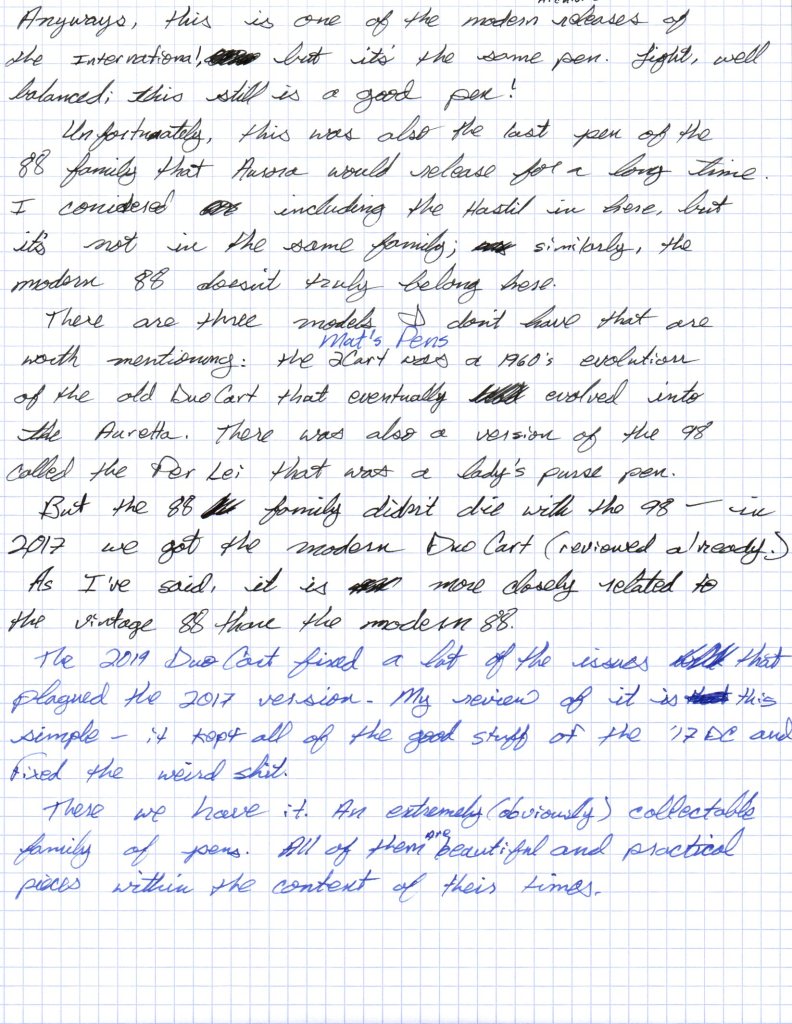 Anyways, this is one of the modern releases of
the International, but it's the same pen. Light, well
balanced; this still is a good pen!
Unfortunately, this was also the last pen of the
88 family that Aurora would release for a long time.
I conidered including the Hastil in here, but
it's not in the same family; similarly, the
modern 88 doesn't truly belong here.
There are three models I don't have that are
Mat's Pens
worth mentioning: the 2Cart was a 1960's evolution
of the old DuoCart that eventually evolved into
the Auretta. There was also a version of the 98
called the Per Lei that was a lady's purse pen.
But the 88 family didn't die with the 98 — in
2017 we got the modern DuoCart (reviewed already.)
As I've said, it is more closely related to
the vintage 88 than the modern 88.
The 2019 DuoCart fixed a lot of the issues that
plagued the 2017 version. My review of it is this
simple — it kept all of the good stuff of the '17 DC and
fixed the weird shit.
There we have it. An extremely (obviously) collectable
family of pens. All of them are beautiful and practical
pieces within the content of their times.